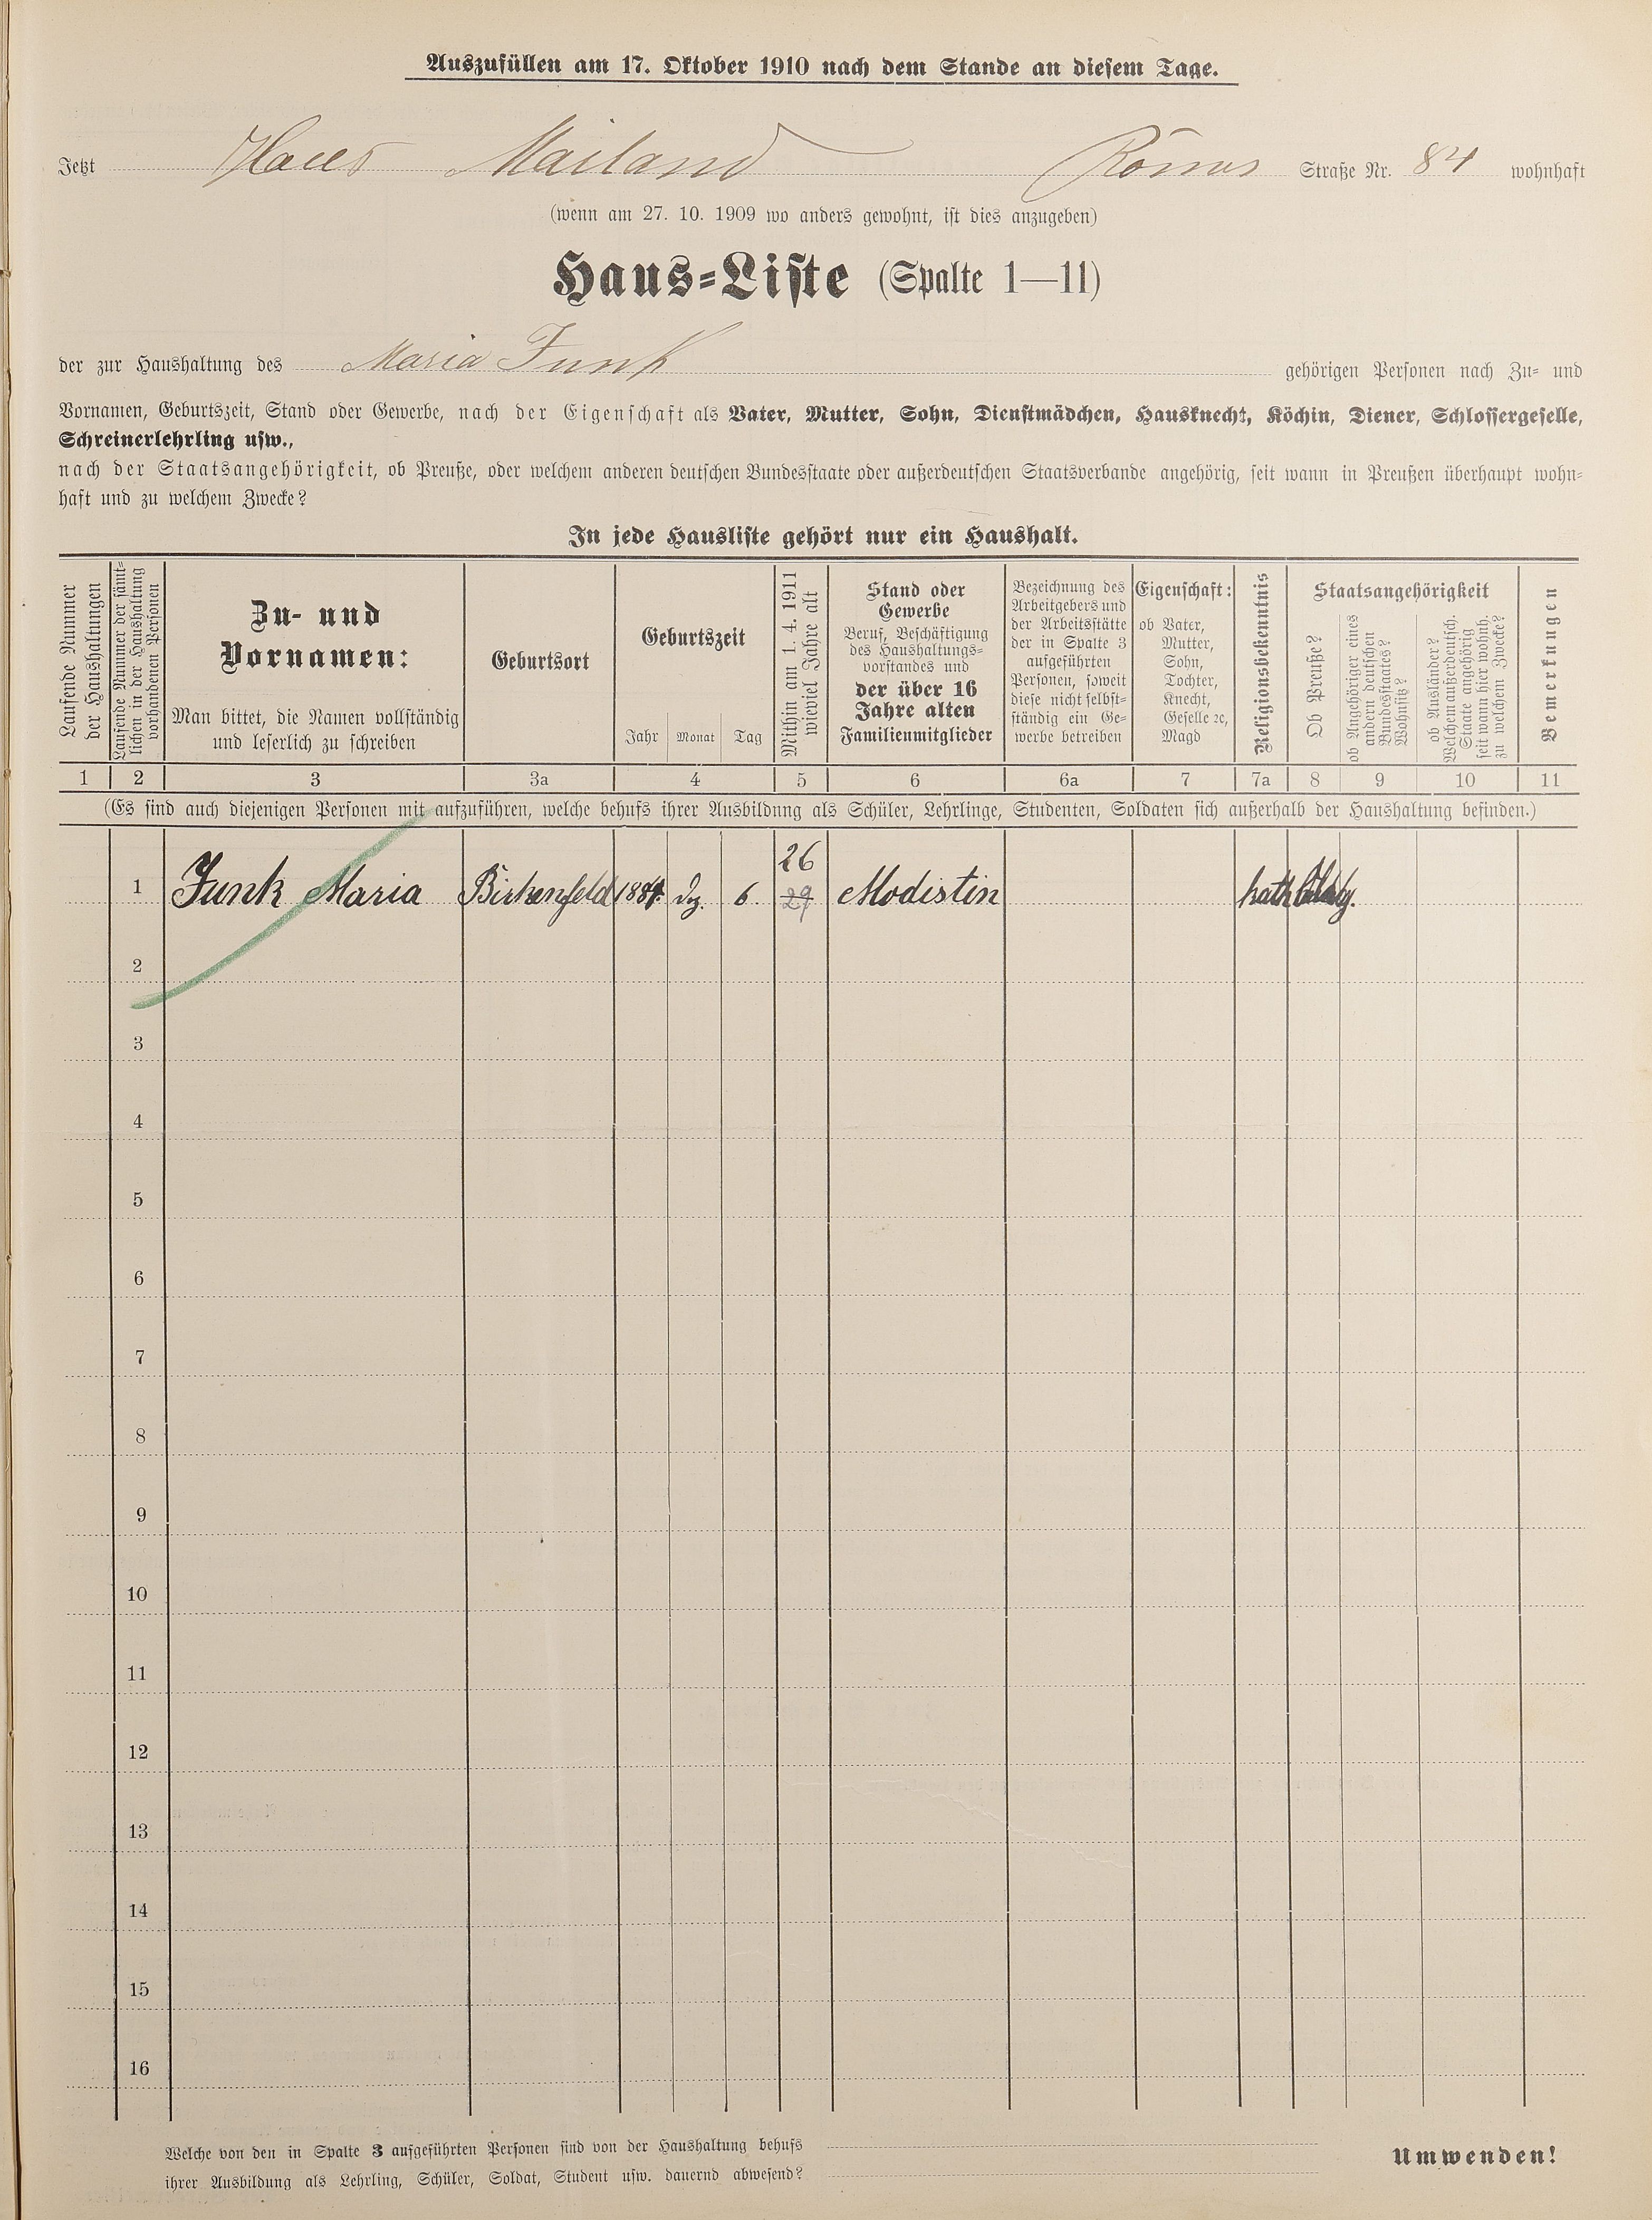 Auszufüllen am 17. Oktober 1910 nach dem Stande an diesem Tage.
Jetzt Haus Mailand Römer Straße Nr. 84 wohnhaft
(wenn am 27. 10. 1909 wo anders gewohnt, ist dies anzugeben)
Haus-Liste (Spalte 1—11)
der zur Haushaltung des Maria Funk gehörigen Personen nach Zu- und
Vornamen, Geburtszeit, Stand oder Gewerbe, nach der Eigenschaft als Vater, Mutter, Sohn, Dienstmädchen, Hausknecht, Köchin, Diener, Schlossergeselle,
Schreinerlehrling usw.,
nach der Staatsangehörigkeit, ob Preuße, oder welchem anderen deutschen Bundesstaate oder außerdeutschen Staatsverbande angehörig, seit wann in Preußen überhaupt wohn-
haft und zu welchem Zwecke?
In jede Hausliste gehört nur ein Haushalt.
Laufende Nummer
der Haushaltungen
Laufende Nummer der sämt-
lichen in der Haushaltung
vorhandenen Personen
Zu- und
Vornamen:
Man bittet, die Namen vollständig
und leserlich zu schreiben
Geburtsort
Geburtszeit
Jahr Monat Tag
Mithin am 1. 4. 1911
wieviel Jahre alt
Stand oder
Gewerbe
Beruf, Beschäftigung
des Haushaltungs-
vorstandes und
der über 16
Jahre alten
Familienmitglieder
Bezeichnung des
Arbeitgebers und
der Arbeitsstätte
der in Spalte 3
aufgeführten
Personen, soweit
diese nicht selbst-
ständig ein Ge-
werbe betreiben
Eigenschaft:
ob Vater,
Mutter,
Sohn,
Tochter,
Knecht,
Geselle ec,
Magd
Religionsbekenntnis
Staatsangehörigkeit
Ob Preuße?
ob Angehöriger eines
andern deutschen
Bundesstaates?
Wohnsitz?
ob Ausländer?
Welchem außerdeutsch.
Staate angehörig
seit wann hier wohnh.
zu welchem Zwecke?
Bemerkungen
1 2 3 3a 4 5 6 6a 7 7a 8 9 10 11
(Es sind auch diejenigen Personen mit aufzuführen, welche behufs ihrer Ausbildung als Schüler, Lehrlinge, Studenten, Soldaten sich außerhalb der Haushaltung befinden.)
26
1 Funk Maria Birkenfeld 1884 Dez. 6. 27 Modistin kath
2
3
4
5
6
7
8
9
10
11
12
13
14
15
16
Welche von den in Spalte 3 aufgeführten Personen sind von der Haushaltung behufs
ihrer Ausbildung als Lehrling, Schüler, Soldat, Student usw. dauernd abwesend?
Umwenden!